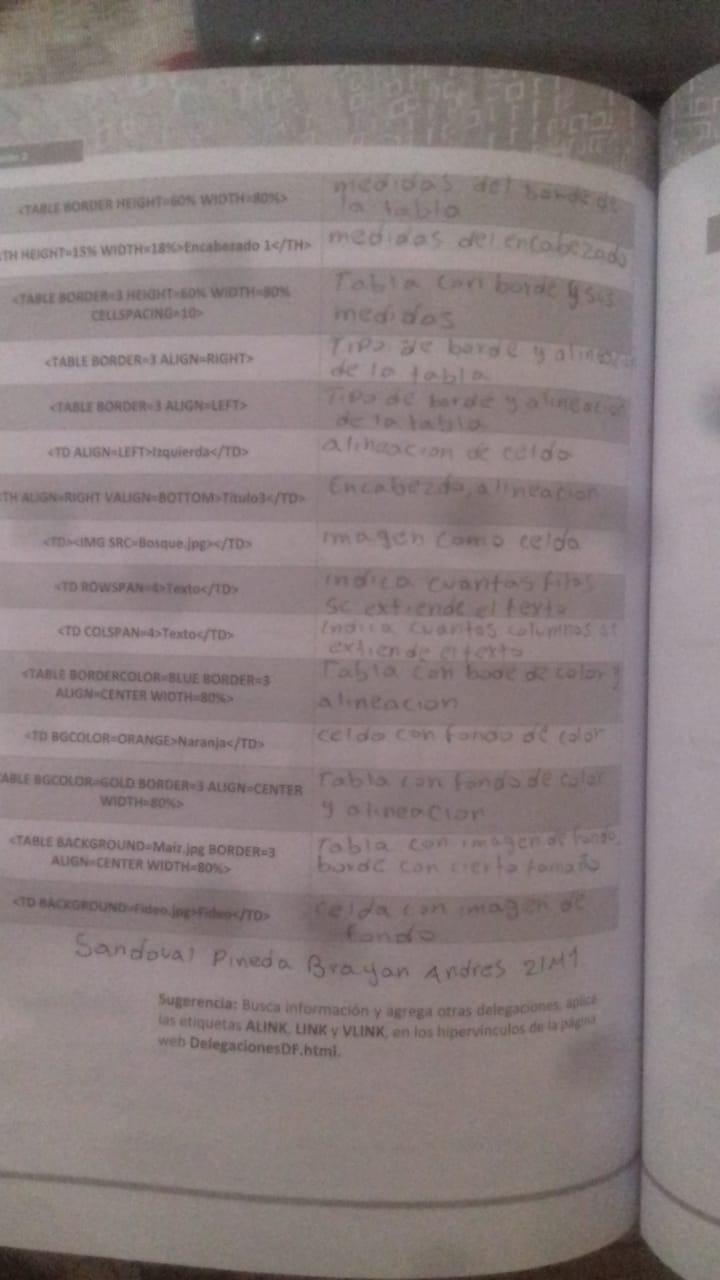 <TABLE BORDER HEIGHT=60% WIDTH=80%>
medidas del borde de
la tabla
TH HEIGHT=15% WIDTH=18%>Encabezado 1</TH>
medidas del encabezado
<TABLE BORDER=3 HEIGHT=60% WIDTH=80%
CELLSPACING=10>
Tabla con borde y sus
medidas
<TABLE BORDER=3 ALIGN=RIGHT>
Tipo de borde y alineacion
de la tabla
<TABLE BORDER=3 ALIGN=LEFT>
Tipo de borde y alineacion
de la tabla
<TD ALIGN=LEFT>Izquierda</TD>
alineacion de celda
TH ALIGN=RIGHT VALIGN=BOTTOM>Titulo3</TD>
Encabezdo, alineacion
<TD><IMG SRC=Bosque.jpg></TD>
imagen como celda
<TD ROWSPAN=4>Texto</TD>
indica cuantas filas
se extiende el texto
<TD COLSPAN=4>Texto</TD>
indica cuantas columnas se
extiende el texto
<TABLE BORDERCOLOR=BLUE BORDER=3
ALIGN=CENTER WIDTH=80%>
Tabla con bode de color y
alineacion
<TD BGCOLOR=ORANGE>Naranja</TD>
celda con fondo de color
TABLE BGCOLOR=GOLD BORDER=3 ALIGN=CENTER
WIDTH=80%>
Tabla con fondo de color
y alineacion
<TABLE BACKGROUND=Maiz.jpg BORDER=3
ALIGN=CENTER WIDTH=80%>
Tabla con imagen de fondo,
borde con cierto tamaño
<TD BACKGROUND=Fideo.jpg>Fideo</TD>
celda con imagen de
fondo
Sandoval Pineda Brayan Andres 21M1
Sugerencia: Busca información y agrega otras delegaciones, aplica
las etiquetas ALINK, LINK y VLINK, en los hipervínculos de la página
web DelegacionesDF.html.